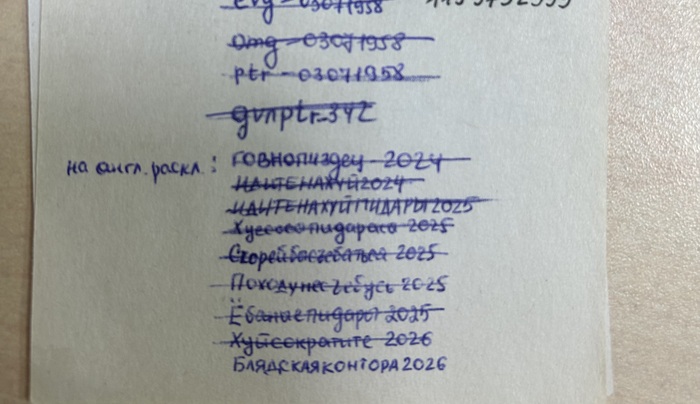 evg - 03071958
omg - 03071958
ptr - 03071958
gvnptr-342
на англ. раскл.: ГОВНОПИЗДЕЦ-2024
ИДИТЕНАХУЙ2024
ИДИТЕНАХУЙПИДАРЫ2025
Хуесосопидараса 2025
2025
2025
Ёбаныепидары 2025
Хуйсократите 2026
БЛЯДСКАЯКОНТОРА2026